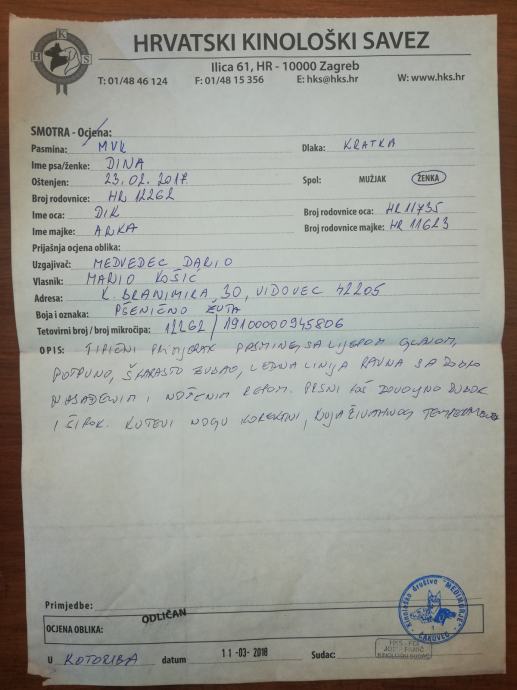 H K S
HRVATSKI KINOLOŠKI SAVEZ
Ilica 61, HR - 10000 Zagreb
T: 01/48 46 124 F: 01/48 15 356 E: hks@hks.hr W: www.hks.hr
SMOTRA - Ocjena:
Pasmina: MVK Dlaka: KRATKA
Ime psa/ženke: DINA
Oštenjen: 23.02.2017. Spol: MUŽJAK ŽENKA
Broj rodovnice: HR 12262
Ime oca: DIK Broj rodovnice oca: HR 11735
Ime majke: ARKA Broj rodovnice majke: HR 11623
Prijašnja ocjena oblika:
Uzgajivač: MEDVEDEC DARIO
Vlasnik: MARIO KOŠIĆ
Adresa: K. BRANIMIRA, 30, VIDOVEC 42205
Boja i oznaka: PŠENIČNO ŽUTA
Tetovirni broj / broj mikročipa: 12262 / 19100000945806
OPIS: TIPIČNI PRIMJERAK PASMINE, SA LIJEPOM GLAVOM,
POTPUNO, ŠKARASTO ZUBALO, LEĐNA LINIJA RAVNA SA DOBRO
NASAĐENIM I NOŠENIM REPOM. PRSNI KOŠ DOVOLJNO DUBOK
I ŠIROK. KUTEVI NOGU KOREKTNI, KUJA ŽIVAHNOG TEMPERAMENTA
Primjedbe:
OCJENA OBLIKA: ODLIČAN
Kinološko društvo "MEĐIMURJE" ČAKOVEC
U KOTORIBA datum 11-03-2018 Sudac: HKS - FCI
KINOLOŠKI SUDAC